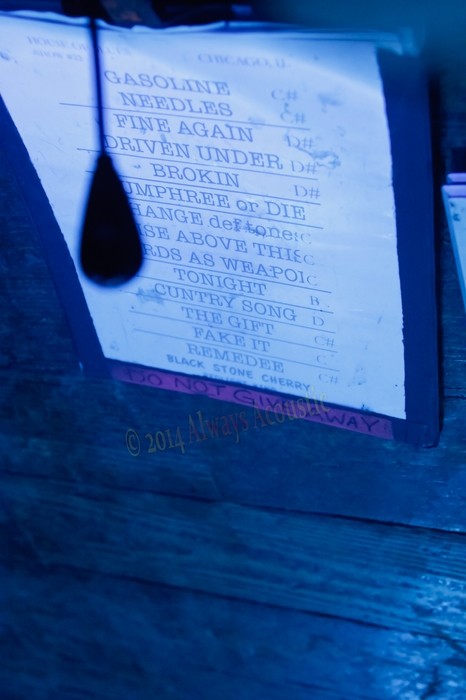 HOUSE OF BLUES CHICAGO, IL
GASOLINE C#
NEEDLES C#
FINE AGAIN D#
DRIVEN UNDER D#
BROKIN D#
UMPHREE or DIE
HANGE deftones C
SE ABOVE THIS C
RDS AS WEAPO C
TONIGHT B
CUNTRY SONG D
THE GIFT C#
FAKE IT C
REMEDEE C#
BLACK STONE CHERRY
DO NOT GIVE AWAY
© 2014 Always Acoustic